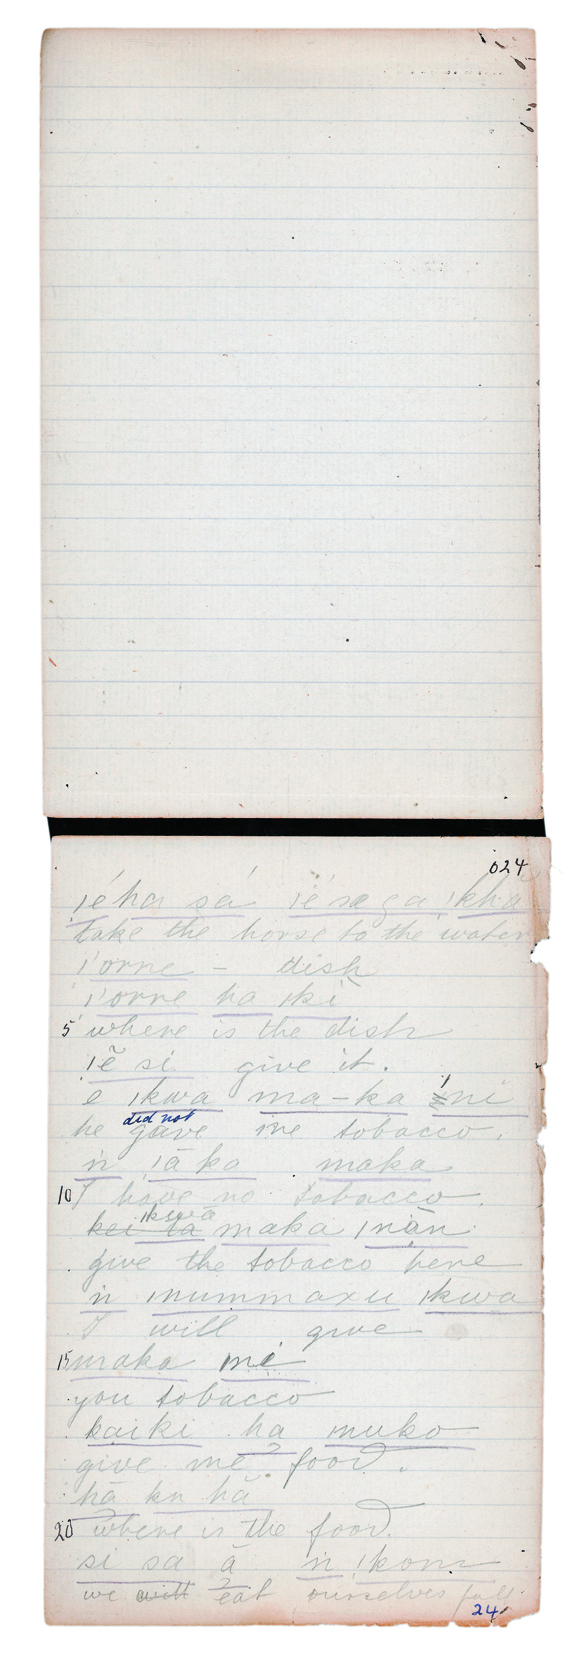 024
ıéha sá ıé sæ ga ıkha
take the horse to the water
ı'orre - dish
ı'orre ha ıki
5 where is the dish
ıĕ si give it.
e ıkwa ma-ka ıni
he did not gave me tobacco.
n ıā ka maka
10 I have no tobacco.
ıkwā maka ınān
give the tobacco here
n ınummaxu ıkwa
I will give
15 maka mé
you tobacco
kaiki ha muko
give me food.
hā kn hă
20 where is the food.
si sa ā n ıkom
we will eat ourselves full
24